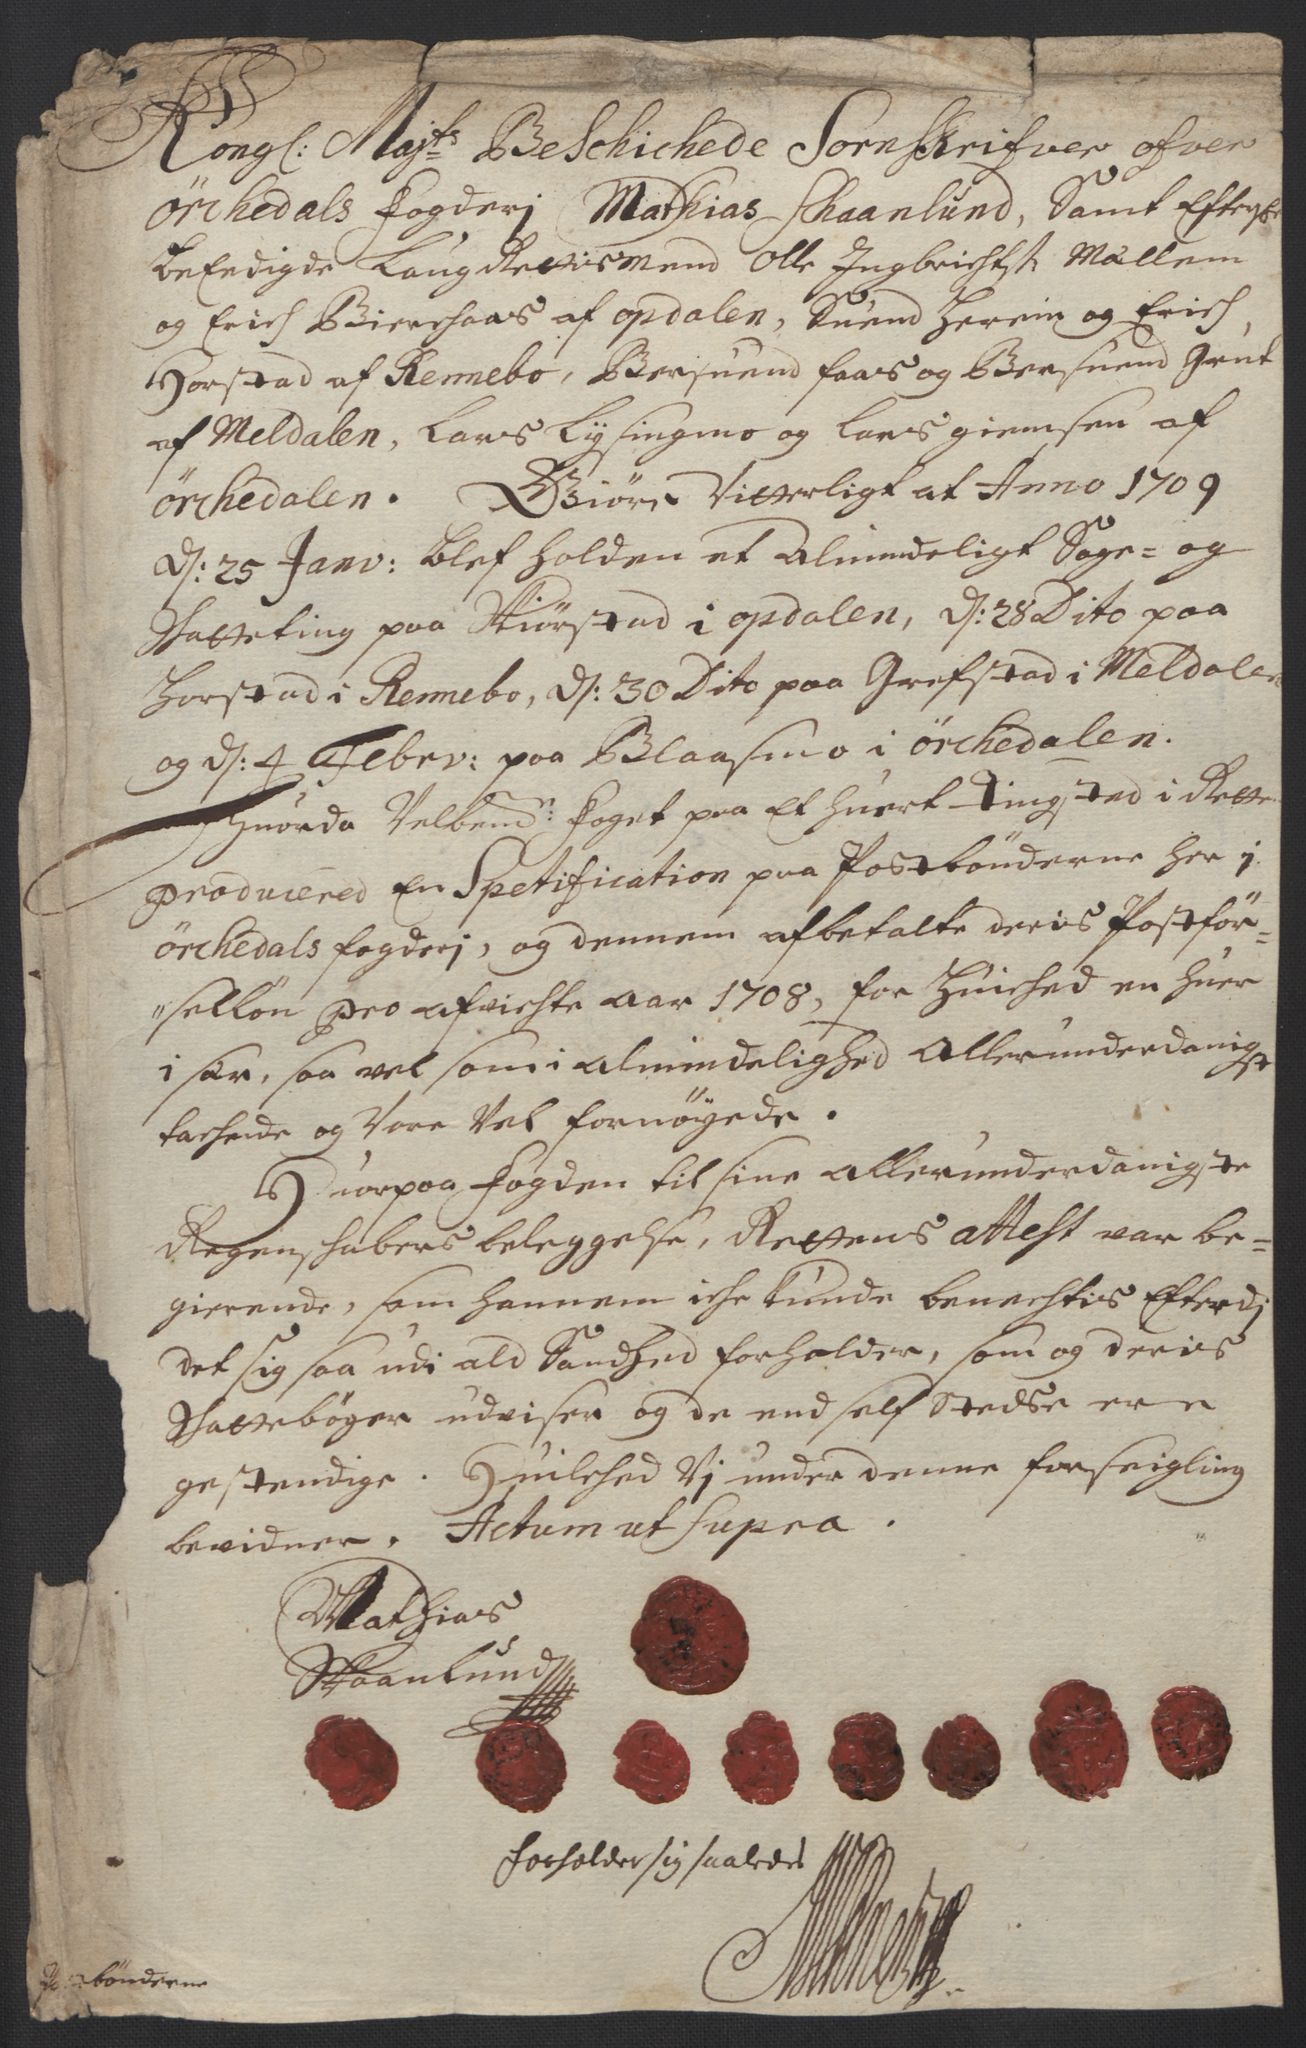 Kongl: Majts BeSchichede SorenSkrifver ofver
örchedals fogderj Mathias Schaanlund, Samt Effterschr
beEdigde LaugRettismend Olle Ingbrichtsn Mællem
og Erich Bierchaas af opdalen, Suend Herrem og Erich
Horstad af Rennebo, Bersuend faas og Bersuend Grut
af Meldalen, Lars Lysingmo og Lars giemsen af
örchedalen. Giöre Vitterligt at Anno 1709
d: 25 Janv: blef holden et Almindeligt Sage= og
Skatteting paa Stiörstad i opdalen, d: 28 Dito paa
Horstad i Rennebo, d: 30 Dito paa Grefstad i Meldalen
og d: 4 Febrv: paa Blaasmo i örchedalen.
Huorda Velbemte: foget paa Et huert Tingsted i Rette
producered En Spetification paa Postbönderne her i
örchedals fogderj, og dennem afbetalte deris Postför=
"sellön pro afvichte aar 1708, for Huicked en huer
i sær, saa vel som i almindelighed allerunderdanigst
tachede og Vare Vel fornöyede.
Huorpaa fogden til sine allerunderdanigste
Regenschabers beleggelse, Rettens attest var be=
gierende, som hannem iche kunde benechtis Efterdj
det sig saa udi ald Sandhed forholder, som og deris
Skatteböger udviser og de end self Stedse ere
gestendige. Huilched Vj under denne forseigling
bevidner. Actum ut supra.
Mathias
Skaanlund
forholder sig saaledes
Postbönderne